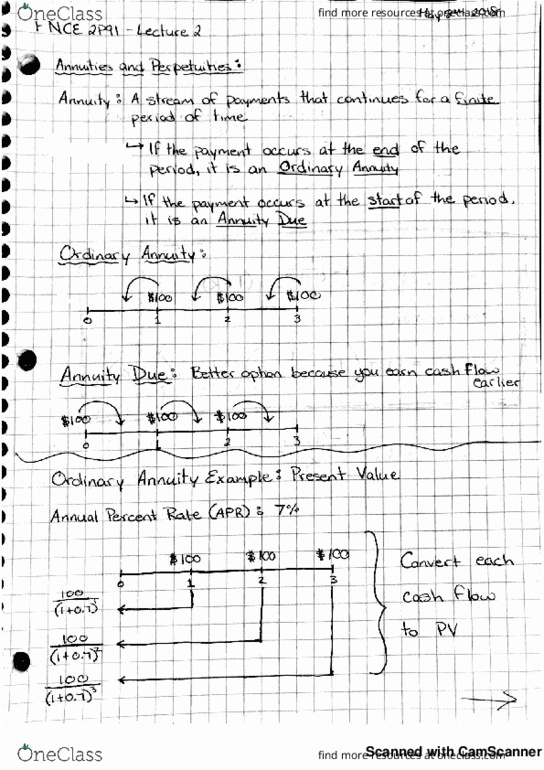 OneClass
find more resources at oneclass.com
FNCE 2P91 - Lecture 2
Annuities and Perpetuities:
Annuity: A stream of payments that continues for a finite
period of time
↳ If the payment occurs at the end of the
period, it is an Ordinary Annuity
↳ If the payment occurs at the start of the period,
it is an Annuity Due
Ordinary Annuity:
$100 $100 $100
0 1 2 3
Annuity Due: Better option because you earn cash flow
earlier
$100 $100 $100
0 1 2 3
Ordinary Annuity Example: Present Value
Annual Percent Rate (APR): 7%
$100 $100 $100
0 1 2 3
Convert each
cash flow
to PV
100
(1+0.7)
100
(1+0.7)²
100
(1+0.7)³
OneClass
find more resources at oneclass.com
Scanned with CamScanner